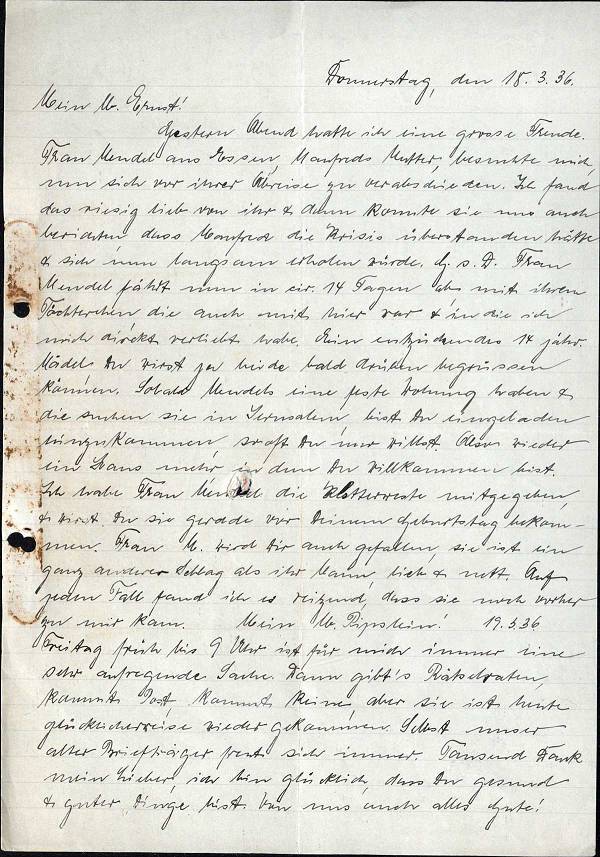 Donnerstag, den 18. 3. 36.
Mein l. Ernst!
Gestern Abend hatte ich eine grosse Freude.
Frau Mendel aus Essen, Manfreds Mutter, besuchte mich,
um sich vor ihrer Abreise zu verabschieden. Ich fand
das riesig lieb von ihr & dann konnte sie uns auch
berichten dass Manfred die Krisis überstanden hätte
& sich nun langsam erholen würde. G. s. D. Frau
Mendel fährt nun in cir. 14 Tagen ab mit ihrem
Töchterchen die auch mit hier war & in die ich
mich direkt verliebt habe. Ein entzückendes 14 jähr.
Mädel. Du wirst ja beide bald drüben begrüssen
können. Sobald Mendels eine feste Wohnung haben &
die suchen sie in Jerusalem, bist Du eingeladen
hinzukommen, so oft Du nur willst. Also wieder
ein Haus mehr in dem Du willkommen bist.
Ich habe Frau Mendel die Kletterweste mitgegeben,
& wirst Du sie gerade vor Deinem Geburtstag bekom-
men. Frau M. wird Dir auch gefallen, sie ist ein
ganz anderer Schlag als ihr Mann, lieb & nett. Auf
jeden Fall fand ich es reizend, dass sie noch vorher
zu mir kam. Mein l. 19.3.36
Freitag früh bis 9 Uhr ist für mich immer eine
sehr aufregende Sache. Dann gibt's Rätselraten,
kommt Post, kommt keine, aber sie ist heute
glücklicherweise wieder gekommen. Selbst unser
alter Briefträger freut sich immer. Tausend Dank
mein Lieber, ich bin glücklich, dass Du gesund
& guter Dinge bist. Von uns auch alles Gute!